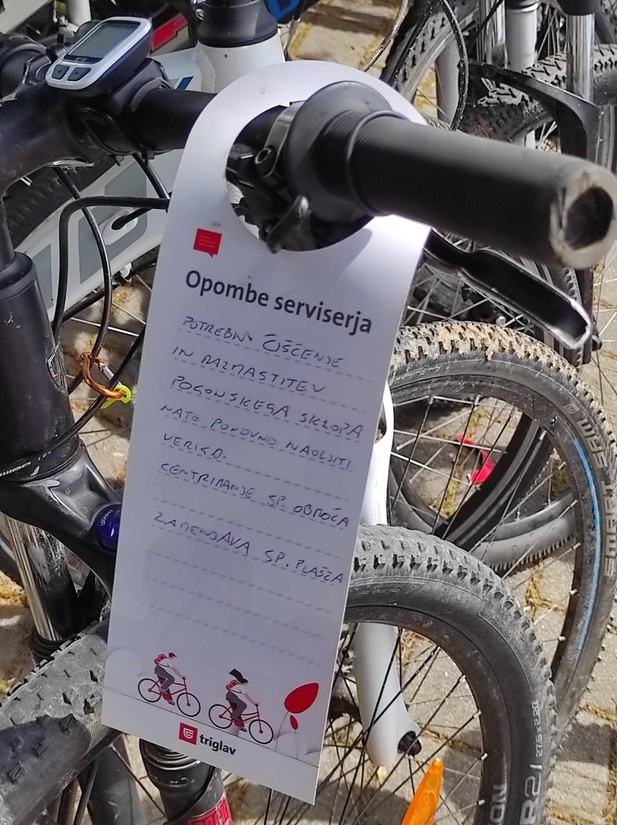 Opombe serviserja
POTREBNO ČIŠČENJE
IN RAZMASTITEV
POGONSKEGA SKLOPA
NATO PONOVNO NAOLJITI
VERIGO.
CENTRIRANJE SP. OBROČA
ZAMENJAVA SP. PLAŠČA
triglav